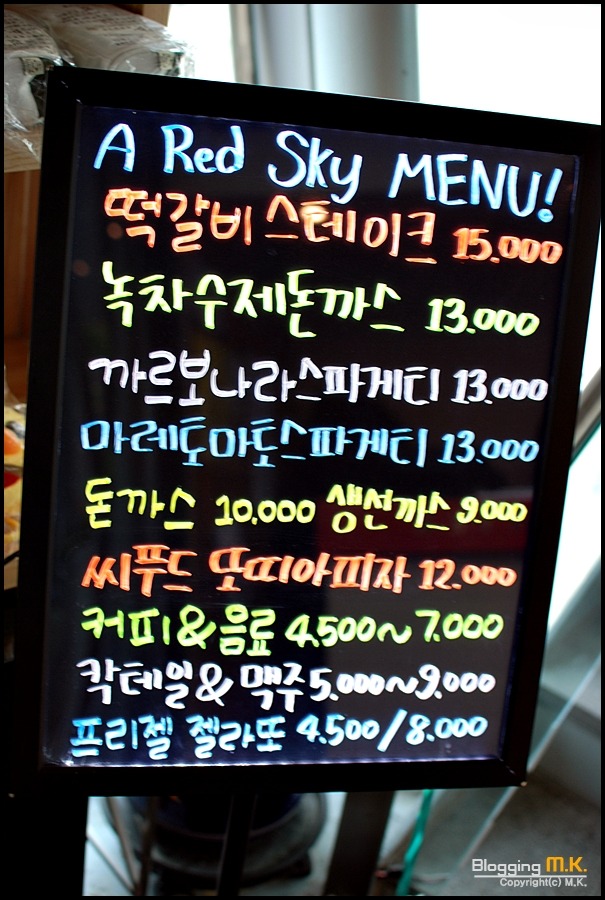 A Red Sky MENU!
떡갈비 스테이크 15.000
녹차수제돈까스 13.000
까르보나라스파게티 13.000
마레토마토스파게티 13.000
돈까스 10.000 생선까스 9.000
씨푸드 또띠아피자 12.000
커피&음료 4.500~7.000
칵테일&맥주 5.000~9.000
프리젤 젤라또 4.500/8.000
Blogging M.K.
Copyright(c) M.K.